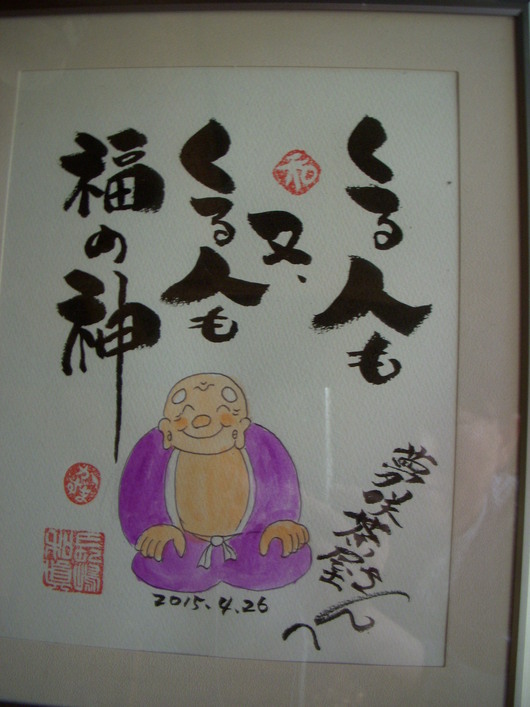 くる人も
又、
くる人も
福の神
夢咲茶屋さんへ
2015.4.26
和